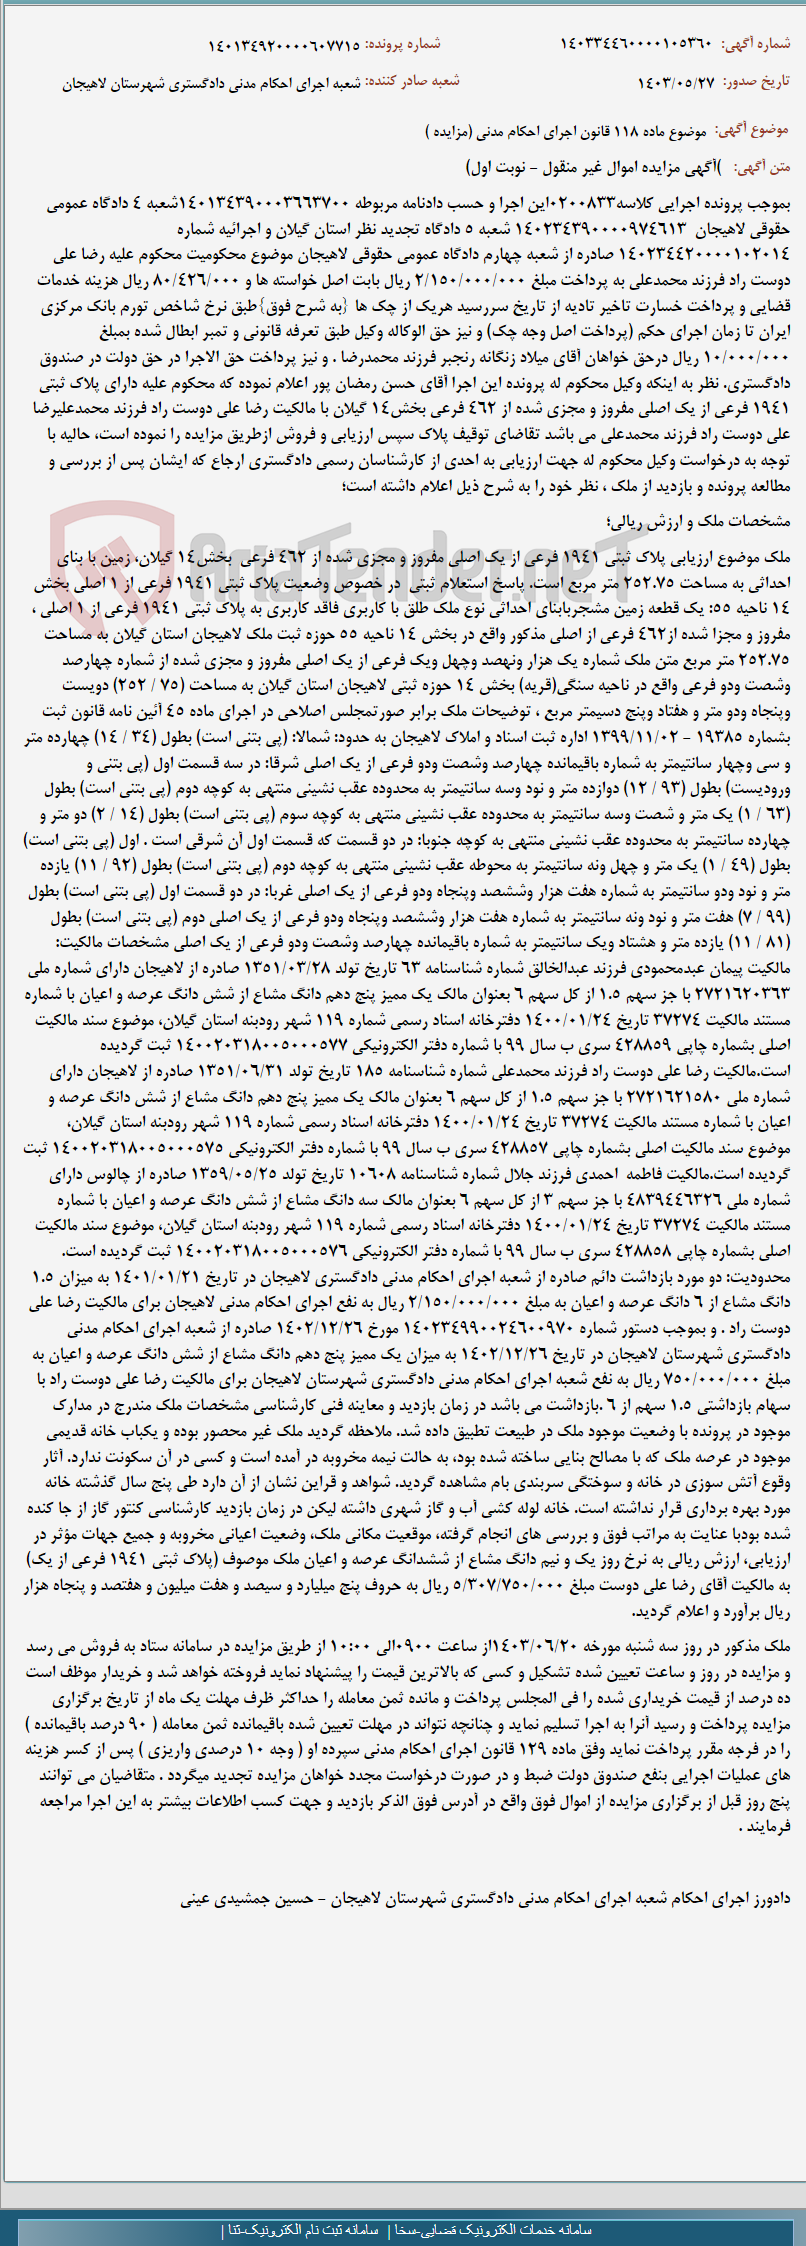 شماره آگهی: ۱۴۰۳۳۴۴۶۰۰۰۰۱۰۵۳۶۰ شماره پرونده: ۱۴۰۱۳۴۹۲۰۰۰۰۶۰۷۷۱۵
تاریخ صدور: ۱۴۰۳/۰۵/۲۷ شعبه صادر کننده: شعبه اجرای احکام مدنی دادگستری شهرستان لاهیجان
موضوع آگهی: موضوع ماده ۱۱۸ قانون اجرای احکام مدنی (مزایده )
متن آگهی: )آگهی مزایده اموال غیر منقول - نوبت اول)
بموجب پرونده اجرایی کلاسه۰۲۰۰۸۳۳این اجرا و حسب دادنامه مربوطه ۱۴۰۱۳۴۳۹۰۰۰۳۶۶۳۷۰۰شعبه ۴ دادگاه عمومی
حقوقی لاهیجان ۱۴۰۲۳۴۳۹۰۰۰۰۹۷۴۶۱۳ شعبه ۵ دادگاه تجدید نظر استان گیلان و اجرائیه شماره
۱۴۰۲۳۴۴۲۰۰۰۰۱۰۲۰۱۴ صادره از شعبه چهارم دادگاه عمومی حقوقی لاهیجان موضوع محکومیت محکوم علیه رضا علی
دوست راد فرزند محمدعلی به پرداخت مبلغ ۲/۱۵۰/۰۰۰/۰۰۰ ریال بابت اصل خواسته ها و ۸۰/۴۲۶/۰۰۰ ریال هزینه خدمات
قضایی و پرداخت خسارت تاخیر تادیه از تاریخ سررسید هریک از چک ها {به شرح فوق}طبق نرخ شاخص تورم بانک مرکزی
ایران تا زمان اجرای حکم (پرداخت اصل وجه چک) و نیز حق الوکاله وکیل طبق تعرفه قانونی و تمبر ابطال شده بمبلغ
۱۰/۰۰۰/۰۰۰ ریال درحق خواهان آقای میلاد زنگانه رنجبر فرزند محمدرضا . و نیز پرداخت حق الاجرا در حق دولت در صندوق
دادگستری. نظر به اینکه وکیل محکوم له پرونده این اجرا آقای حسن رمضان پور اعلام نموده که محکوم علیه دارای پلاک ثبتی
۱۹۴۱ فرعی از یک اصلی مفروز و مجزی شده از ۴۶۲ فرعی بخش۱۴ گیلان با مالکیت رضا علی دوست راد فرزند محمدعلیرضا
علی دوست راد فرزند محمدعلی می باشد تقاضای توقیف پلاک سپس ارزیابی و فروش ازطریق مزایده را نموده است، حالیه با
توجه به درخواست وکیل محکوم له جهت ارزیابی به احدی از کارشناسان رسمی دادگستری ارجاع که ایشان پس از بررسی و
مطالعه پرونده و بازدید از ملک ، نظر خود را به شرح ذیل اعلام داشته است؛
مشخصات ملک و ارزش ریالی؛
AriaTender.neT
ملک موضوع ارزیابی پلاک ثبتی ۱۹۴۱ فرعی از یک اصلی مفروز و مجزی شده از ۴۶۲ فرعی بخش۱۴ گیلان، زمین با بنای
احداثی به مساحت ۲۵۲.۷۵ متر مربع است. پاسخ استعلام ثبتی در خصوص وضعیت پلاک ثبتی ۱۹۴۱ فرعی از ۱ اصلی بخش
۱۴ ناحیه ۵۵: یک قطعه زمین مشجربابنای احداثی نوع ملک طلق با کاربری فاقد کاربری به پلاک ثبتی ۱۹۴۱ فرعی از ۱ اصلی ،
مفروز و مجزا شده از۴۶۲ فرعی از اصلی مذکور واقع در بخش ۱۴ ناحیه ۵۵ حوزه ثبت ملک لاهیجان استان گیلان به مساحت
۲۵۲.۷۵ متر مربع متن ملک شماره یک هزار ونهصد وچهل ویک فرعی از یک اصلی مفروز و مجزی شده از شماره چهارصد
وشصت ودو فرعی واقع در ناحیه سنگی(قریه) بخش ۱۴ حوزه ثبتی لاهیجان استان گیلان به مساحت (۷۵ / ۲۵۲) دویست
وپنجاه ودو متر و هفتاد وپنج دسیمتر مربع ، توضیحات ملک برابر صورتمجلس اصلاحی در اجرای ماده ۴۵ آئین نامه قانون ثبت
بشماره ۱۹۳۸۵ - ۱۳۹۹/۱۱/۰۲ اداره ثبت اسناد و املاک لاهیجان به حدود: شمالا: (پی بتنی است) بطول (۳۴ / ۱۴) چهارده متر
و سی وچهار سانتیمتر به شماره باقیمانده چهارصد وشصت ودو فرعی از یک اصلی شرقا: در سه قسمت اول (پی بتنی و
ورودیست) بطول (۹۳ / ۱۲) دوازده متر و نود وسه سانتیمتر به محدوده عقب نشینی منتهی به کوچه دوم (پی بتنی است) بطول
(۶۳ / ۱) یک متر و شصت وسه سانتیمتر به محدوده عقب نشینی منتهی به کوچه سوم (پی بتنی است) بطول (۱۴ / ۲) دو متر و
چهارده سانتیمتر به محدوده عقب نشینی منتهی به کوچه جنوبا: در دو قسمت که قسمت اول آن شرقی است . اول (پی بتنی است)
بطول (۴۹ / ۱) یک متر و چهل ونه سانتیمتر به محوطه عقب نشینی منتهی به کوچه دوم (پی بتنی است) بطول (۹۲ / ۱۱) یازده
متر و نود ودو سانتیمتر به شماره هفت هزار وششصد وپنجاه ودو فرعی از یک اصلی غربا: در دو قسمت اول (پی بتنی است) بطول
(۹۹ / ۷) هفت متر و نود ونه سانتیمتر به شماره هفت هزار وششصد وپنجاه ودو فرعی از یک اصلی دوم (پی بتنی است) بطول
(۸۱ / ۱۱) یازده متر و هشتاد ویک سانتیمتر به شماره باقیمانده چهارصد وشصت ودو فرعی از یک اصلی مشخصات مالکیت:
مالکیت پیمان عبدمحمودی فرزند عبدالخالق شماره شناسنامه ۶۳ تاریخ تولد ۱۳۵۱/۰۳/۲۸ صادره از لاهیجان دارای شماره ملی
۲۷۲۱۶۲۰۳۶۳ با جز سهم ۱.۵ از کل سهم ۶ بعنوان مالک یک ممیز پنج دهم دانگ مشاع از شش دانگ عرصه و اعیان با شماره
مستند مالکیت ۳۷۲۷۴ تاریخ ۱۴۰۰/۰۱/۲۴ دفترخانه اسناد رسمی شماره ۱۱۹ شهر رودبنه استان گیلان، موضوع سند مالکیت
اصلی بشماره چاپی ۴۲۸۸۵۹ سری ب سال ۹۹ با شماره دفتر الکترونیکی ۱۴۰۰۲۰۳۱۸۰۰۵۰۰۰۵۷۷ ثبت گردیده
است.مالکیت رضا علی دوست راد فرزند محمدعلی شماره شناسنامه ۱۸۵ تاریخ تولد ۱۳۵۱/۰۶/۳۱ صادره از لاهیجان دارای
شماره ملی ۲۷۲۱۶۲۱۵۸۰ با جز سهم ۱.۵ از کل سهم ۶ بعنوان مالک یک ممیز پنج دهم دانگ مشاع از شش دانگ عرصه و
اعیان با شماره مستند مالکیت ۳۷۲۷۴ تاریخ ۱۴۰۰/۰۱/۲۴ دفترخانه اسناد رسمی شماره ۱۱۹ شهر رودبنه استان گیلان،
موضوع سند مالکیت اصلی بشماره چاپی ۴۲۸۸۵۷ سری ب سال ۹۹ با شماره دفتر الکترونیکی ۱۴۰۰۲۰۳۱۸۰۰۵۰۰۰۵۷۵ ثبت
گردیده است.مالکیت فاطمه احمدی فرزند جلال شماره شناسنامه ۱۰۶۰۸ تاریخ تولد ۱۳۵۹/۰۵/۲۵ صادره از چالوس دارای
شماره ملی ۴۸۳۹۴۴۶۳۲۶ با جز سهم ۳ از کل سهم ۶ بعنوان مالک سه دانگ مشاع از شش دانگ عرصه و اعیان با شماره
مستند مالکیت ۳۷۲۷۴ تاریخ ۱۴۰۰/۰۱/۲۴ دفترخانه اسناد رسمی شماره ۱۱۹ شهر رودبنه استان گیلان، موضوع سند مالکیت
اصلی بشماره چاپی ۴۲۸۸۵۸ سری ب سال ۹۹ با شماره دفتر الکترونیکی ۱۴۰۰۲۰۳۱۸۰۰۵۰۰۰۵۷۶ ثبت گردیده است.
محدودیت: دو مورد بازداشت دائم صادره از شعبه اجرای احکام مدنی دادگستری لاهیجان در تاریخ ۱۴۰۱/۰۱/۲۱ به میزان ۱.۵
دانگ مشاع از ۶ دانگ عرصه و اعیان به مبلغ ۲/۱۵۰/۰۰۰/۰۰۰ ریال به نفع اجرای احکام مدنی لاهیجان برای مالکیت رضا علی
دوست راد . و بموجب دستور شماره ۱۴۰۲۳۴۹۹۰۰۲۴۶۰۰۹۷۰ مورخ ۱۴۰۲/۱۲/۲۶ صادره از شعبه اجرای احکام مدنی
دادگستری شهرستان لاهیجان در تاریخ ۱۴۰۲/۱۲/۲۶ به میزان یک ممیز پنج دهم دانگ مشاع از شش دانگ عرصه و اعیان به
مبلغ ۷۵۰/۰۰۰/۰۰۰ ریال به نفع شعبه اجرای احکام مدنی دادگستری شهرستان لاهیجان برای مالکیت رضا علی دوست راد با
سهام بازداشتی ۱.۵ سهم از ۶ .بازداشت می باشد در زمان بازدید و معاینه فنی کارشناسی مشخصات ملک مندرج در مدارک
موجود در پرونده با وضعیت موجود ملک در طبیعت تطبیق داده شد. ملاحظه گردید ملک غیر محصور بوده و یکباب خانه قدیمی
موجود در عرصه ملک که با مصالح بنایی ساخته شده بود، به حالت نیمه مخروبه در آمده است و کسی در آن سکونت ندارد. آثار
وقوع آتش سوزی در خانه و سوختگی سربندی بام مشاهده گردید. شواهد و قراین نشان از آن دارد طی پنج سال گذشته خانه
مورد بهره برداری قرار نداشته است. خانه لوله کشی آب و گاز شهری داشته لیکن در زمان بازدید کارشناسی کنتور گاز از جا کنده
شده بودبا عنایت به مراتب فوق و بررسی های انجام گرفته، موقعیت مکانی ملک، وضعیت اعیانی مخروبه و جمیع جهات مؤثر در
ارزیابی، ارزش ریالی به نرخ روز یک و نیم دانگ مشاع از ششدانگ عرصه و اعیان ملک موصوف (پلاک ثبتی ۱۹۴۱ فرعی از یک)
به مالکیت آقای رضا علی دوست مبلغ ۵/۳۰۷/۷۵۰/۰۰۰ ریال به حروف پنج میلیارد و سیصد و هفت میلیون و هفتصد و پنجاه هزار
ریال برآورد و اعلام گردید.
ملک مذکور در روز سه شنبه مورخه ۱۴۰۳/۰۶/۲۰از ساعت ۰۹۰۰الی ۱۰:۰۰ از طریق مزایده در سامانه ستاد به فروش می رسد
و مزایده در روز و ساعت تعیین شده تشکیل و کسی که بالاترین قیمت را پیشنهاد نماید فروخته خواهد شد و خریدار موظف است
ده درصد از قیمت خریداری شده را فی المجلس پرداخت و مانده ثمن معامله را حداکثر ظرف مهلت یک ماه از تاریخ برگزاری
مزایده پرداخت و رسید آنرا به اجرا تسلیم نماید و چنانچه نتواند در مهلت تعیین شده باقیمانده ثمن معامله ( ۹۰ درصد باقیمانده )
را در فرجه مقرر پرداخت نماید وفق ماده ۱۲۹ قانون اجرای احکام مدنی سپرده او ( وجه ۱۰ درصدی واریزی ) پس از کسر هزینه
های عملیات اجرایی بنفع صندوق دولت ضبط و در صورت درخواست مجدد خواهان مزایده تجدید میگردد . متقاضیان می توانند
پنج روز قبل از برگزاری مزایده از اموال فوق واقع در آدرس فوق الذکر بازدید و جهت کسب اطلاعات بیشتر به این اجرا مراجعه
فرمایند .
دادورز اجرای احکام شعبه اجرای احکام مدنی دادگستری شهرستان لاهیجان - حسین جمشیدی عینی
سامانه خدمات الکترونیک قضایی-سخا | سامانه ثبت نام الکترونیک-ثنا |